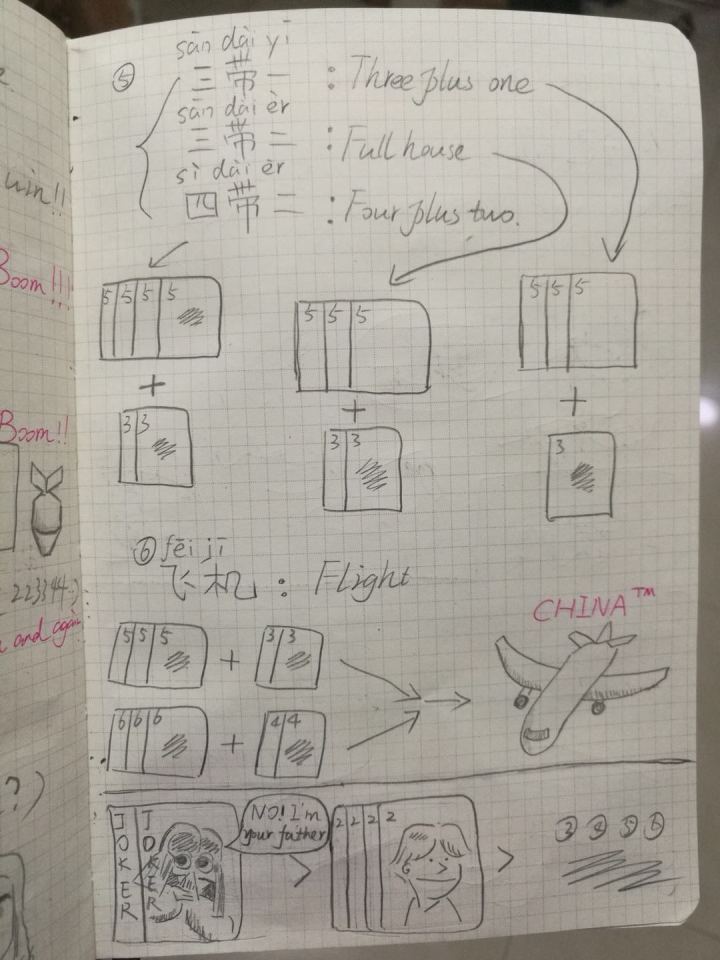 sān dài yī
⑤ 三带一 : Three plus one
sān dài èr
三带二 : Full house
sì dài èr
四带二 : Four plus two.
5 5 5 5
5 5 5
5 5 5
+
+
+
3 3
3 3
3
⑥ fēi jī
飞机 : Flight
CHINA™
5 5 5 + 3 3
6 6 6 + 4 4
JOKER
JOKER
NO! I'm
your father
>
2 2 2 2
>
③ ④ ⑤ ⑥
win!!
Boom!!!
Boom!!
223344 :)
and again
?)